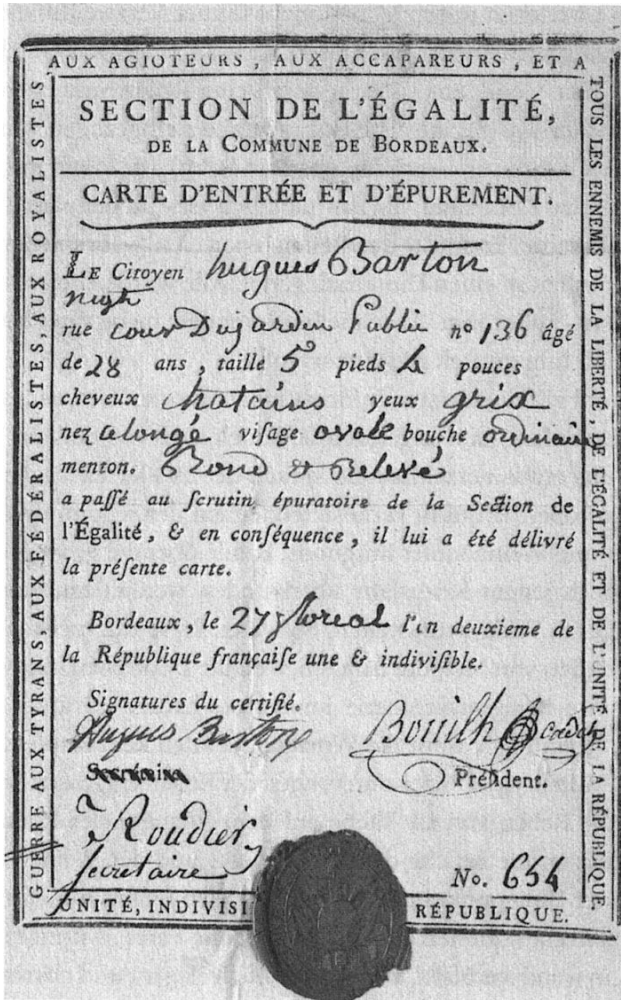 AUX AGIOTEURS, AUX ACCAPAREURS, ET A
TOUS LES ENNEMIS DE LA LIBERTÉ, DE L'ÉGALITÉ ET DE L'UNITÉ DE LA RÉPUBLIQUE.
GUERRE AUX TYRANS, AUX FÉDÉRALISTES, AUX ROYALISTES,
SECTION DE L'ÉGALITÉ,
DE LA COMMUNE DE BORDEAUX.
CARTE D'ENTRÉE ET D'ÉPUREMENT.
LE Citoyen hugues Barton
négt
rue cour Dujardin Public n° 136 âgé
de 28 ans, taille 5 pieds 4 pouces
cheveux chatains yeux grix
nez alongé viſage ovale bouche ordinaire
menton. Rond & Relevé
a paſſé au ſcrutin épuratoire de la Section de
l'Égalité, & en conſéquence, il lui a été délivré
la préſente carte.
Bordeaux, le 27 floreal l'an deuxieme de
la République françaiſe une & indiviſible.
Signatures du certifié.
Hugues Barton
Bouilh Cadet
Préſident.
Roudier
Secretaire
No. 654
UNITÉ, INDIVISI RÉPUBLIQUE.